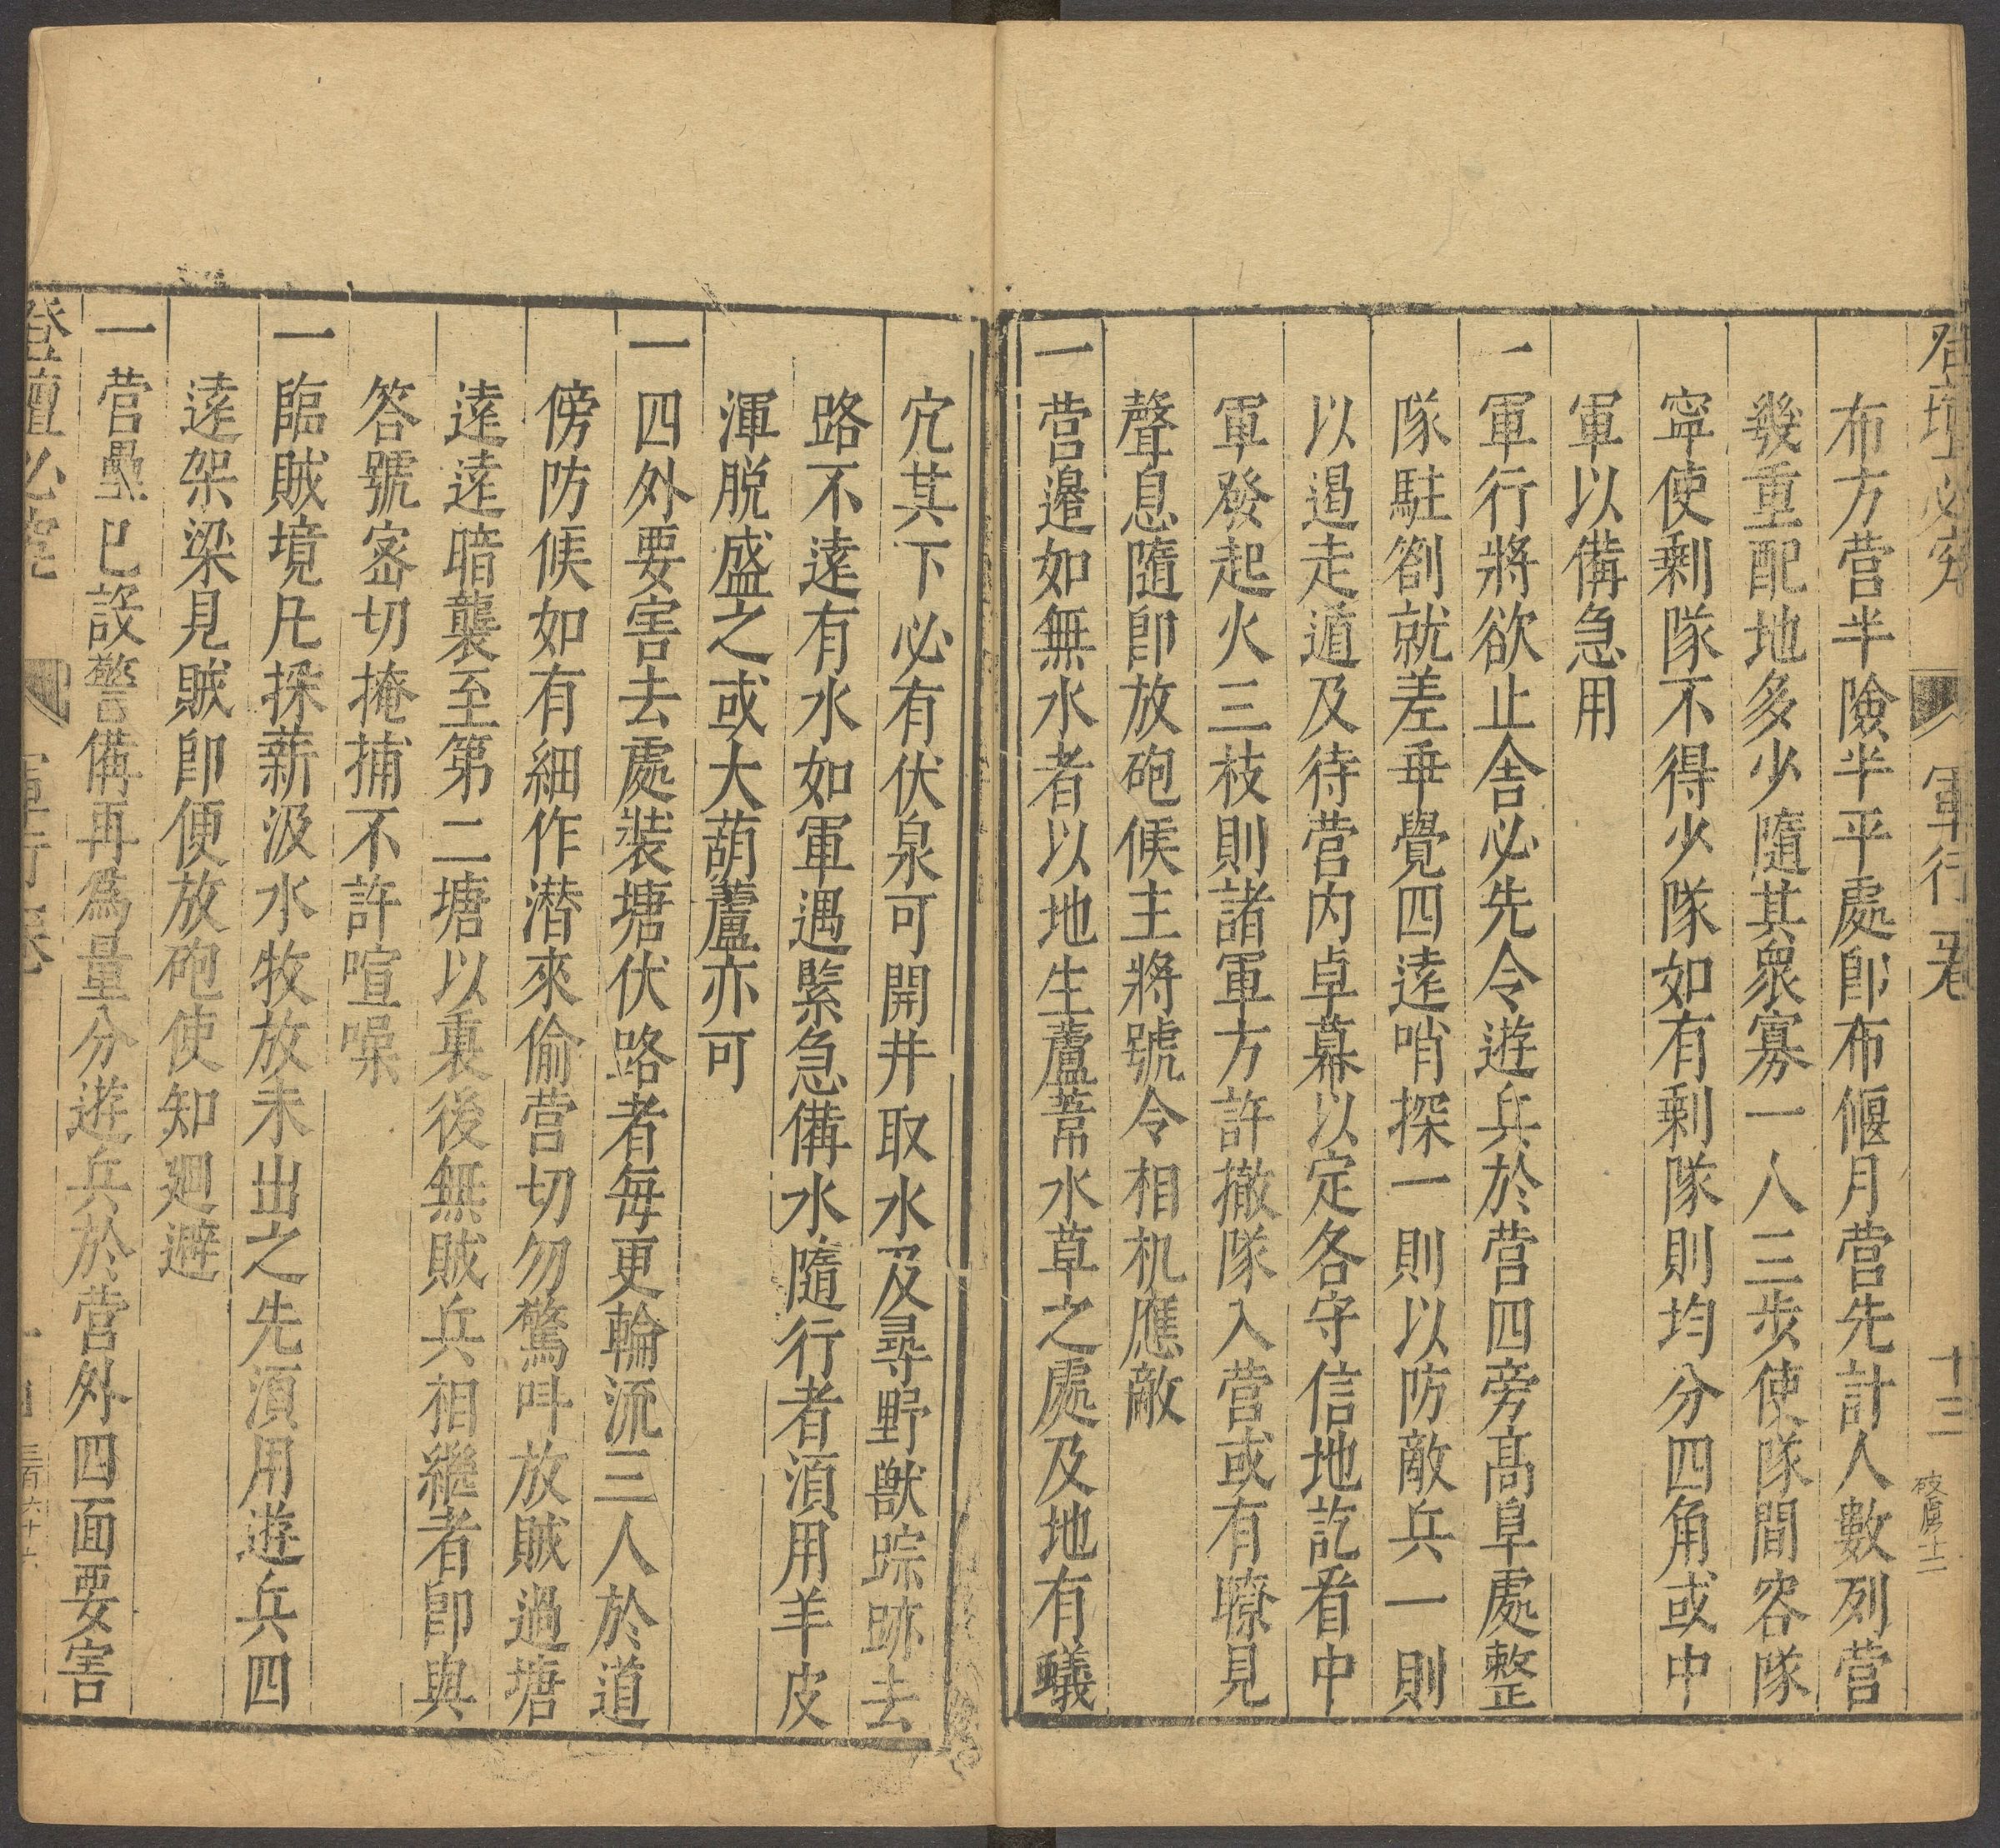 布方营半險半平處即布偃月营先計人數列营
幾重配地多少隨其衆寡一人三步使隊間容隊
寜使剩隊不得少隊如有剩隊則均分四角或中
軍以備急用
一軍行將欲止舍必先令遊兵於营四旁髙阜處整
隊駐劄就差乖覺四逺哨探一則以防敵兵一則
以遏走遁及待营内卓幕以定各守信地訖看中
軍發起火三枝則諸軍方許撤隊入营或有瞭見
聲息隨即放砲候主將號令相机應敵
一营邉如無水者以地生蘆葦水草之處及地有蟻
穴其下必有伏泉可開井取水及尋野獸踪跡去
路不逺有水如軍遇緊急備水隨行者湏用羊皮
渾脱盛之或大葫蘆亦可
一四外要害去處装塘伏路者毎更輪流三人於道
傍防候如有細作潜來偷营切勿驚叫放賊過塘
逺逺暗襲至第二塘以裏後無賊兵相繼者即與
答號宻切掩捕不許喧噪
一臨賊境凡採薪汲水牧放未出之先湏用遊兵四
逺架梁見賊即便放砲使知廻避
一营壘已設警備再爲量分遊兵於营外四面要害
登壇必究
軍行
三百六十六